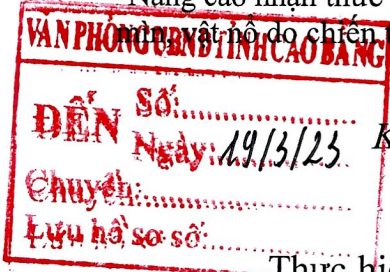 Nâng cao nhận thức
mìn, vật nổ do chiến
VĂN PHÒNG UBND TỈNH CAO BẰNG
ĐẾN
Số:
Ngày: 19/3/23
K
Chuyển:
Lưu hồ sơ số:
Thực hi